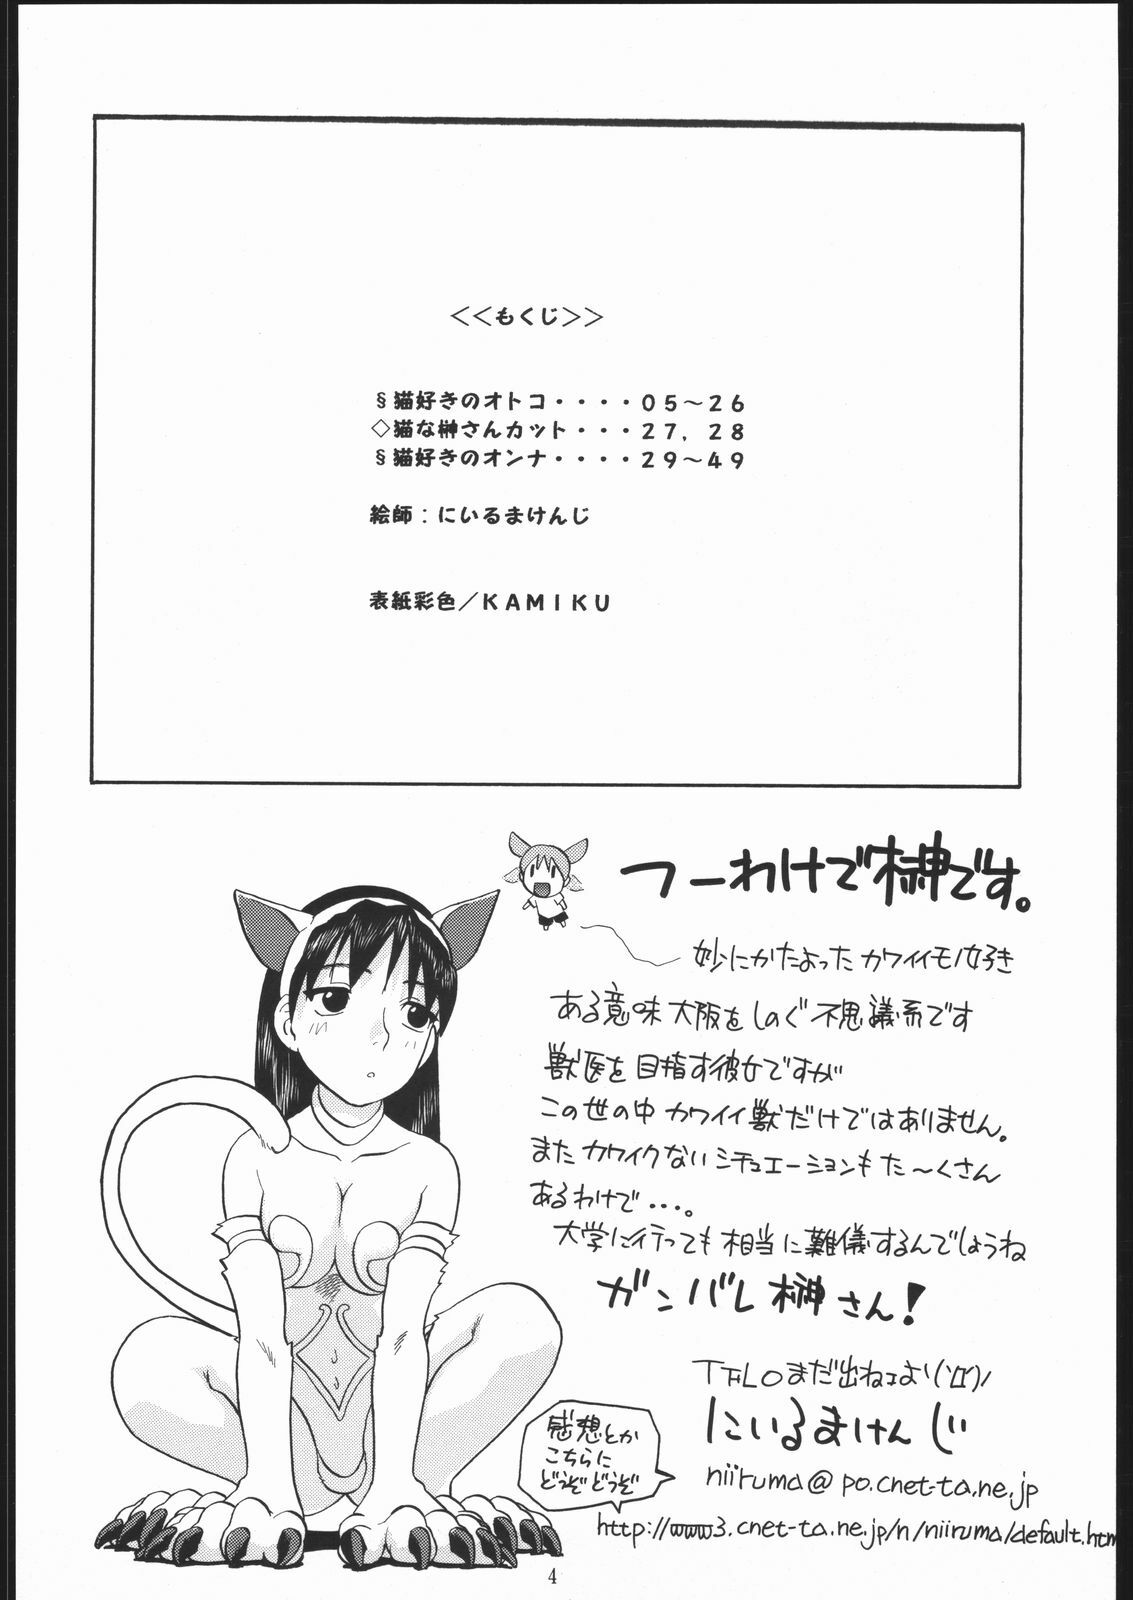 <<もくじ>>
§猫好きのオトコ・・・・05~26
◇猫な榊さんカット・・・27,28
§猫好きのオンナ・・・・29~49
絵師:にいるまけんじ
表紙彩色/KAMIKU
つーわけで榊です。
妙にかたよったカワイイモノ好き
ある意味大阪をしのぐ不思議系です
獣医を目指す彼女ですが
この世の中カワイイ獣だけではありません。
またカワイクないシチュエーションもた〜くさん
あるわけで・・・。
大学に行っても相当に難儀するんでしょうね
ガンバレ榊さん!
TFLOまだ出ねェよ!(`Д´)ノ
にいるまけんじ
感想とか
こちらに
どうぞどうぞ
niiruma@po.cnet-ta.ne.jp
http://www3.cnet-ta.ne.jp/n/niiruma/default.htm
4